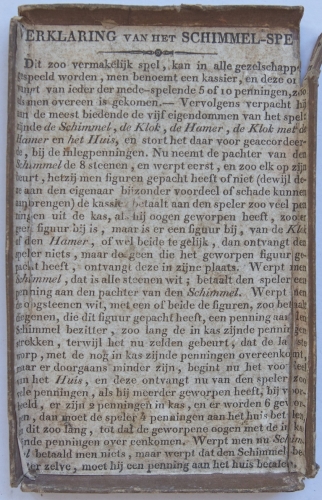 ERKLARING VAN HET SCHIMMEL-SPE
Dit zoo vermakelijk spel, kan in alle gezelschappe
speeld worden, men benoemt een kassier, en deze o
van ieder der mede-spelende 5 of 10 penningen, zoo
ls men overeen is gekomen.— Vervolgens verpacht hi
an de meest biedende de vijf eigendommen van het spel
zijnde de Schimmel, de Klok, de Hamer, de Klok met de
Hamer en het Huis, en stort het daar voor geaccordeer-
de, bij de inlegpenningen. Nu neemt de pachter van den
Schimmel de 8 steenen, en werpt eerst, en zoo elk op zijn
eurt, hetzij men figuren gepacht heeft of niet (dewijl de
ze aan den eigenaar bijzonder voordeel of schade kunnen
anbrengen) de kassie betaalt aan den speler zoo veel pen
ningen uit de kas, als hij oogen geworpen heeft, zoo er
een figuur bij is, maar is er een figuur bij, van de Klok
of den Hamer, of wel beide te gelijk, dan ontvangt de
speler niets, maar de geen die het geworpen figuur ge-
pacht heeft, ontvangt deze in zijne plaats. Werpt men
Schimmel, dat is alle steenen wit; betaalt den speler een
penning aan den pachter van den Schimmel. Werpt men
oogsteenen wit, met een of beide de figuren, zoo betaalt
degenen, die dit figuur gepacht heeft, een penning aan den
Schimmel bezitter, zoo lang de in kas zijnde pennin
strekken, terwijl het nu zelden gebeurt, dat de la
worp, met de nog in kas zijnde penningen overeenkomt,
maar er doorgaans minder zijn, begint nu het voor
van het Huis, en deze ontvangt nu van den speler zoo
vele penningen, als hij meerder geworpen heeft, bij voor-
beeld, er zijn 2 penningen in kas, en er worden 6 gewor
en, dan moet de speler 4 penningen aan het huis betalen,
en dit zoo lang, tot dat de geworpene oogen met de in kas
nde penningen over eenkomen. Werpt men nu Schim
el betaald men niets, maar werpt dan den Schimmel be
ter zelve, moet hij een penning aan het huis betalen.